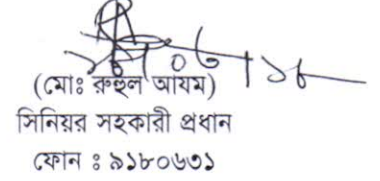 (মোঃ রুহুল আযম)
সিনিয়র সহকারী প্রধান
ফোন ঃ ৯১৮০৬৩১